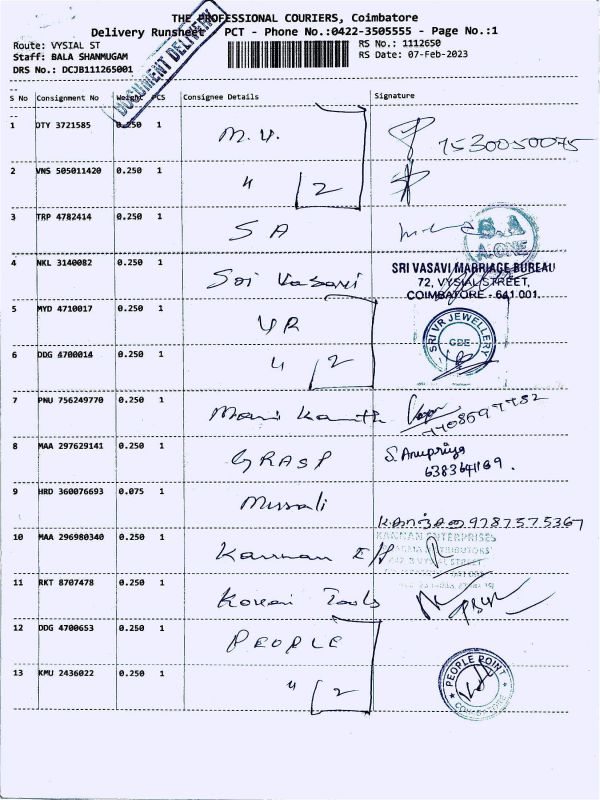 THE PROFESSIONAL COURIERS, Coimbatore
Delivery Runsheet PCT - Phone No.:0422-3505555 - Page No.:1
Route: VYSIAL ST RS No.: 1112650
Staff: BALA SHANMUGAM RS Date: 07-Feb-2023
DRS No.: DCJB111265001
DOCUMENT DELIVERY
S No Consignment No Weight PCS Consignee Details Signature
1 DTY 3721585 0.250 1 M.Y. 7530050075
2 VNS 505011420 0.250 1 " 2
3 TRP 4782414 0.250 1 S A
S.A
A.ONE
4 NKL 3140082 0.250 1 Sri Vasavi
SRI VASAVI MARRIAGE BUREAU
72, VYSIAL STREET,
COIMBATORE - 641 001.
5 MYD 4710017 0.250 1 VR
SRI VR JEWELLERY
CBE
6 DDG 4700014 0.250 1 " 2
7 PNU 756249770 0.250 1 Mani Kanth
8 MAA 297629141 0.250 1 GRASP S. Anupriya
6383641169.
9 HRD 360076693 0.075 1 9787575367
10 MAA 296980340 0.250 1 Kannan
KANNAN ENTERPRISES
11 RKT 8707478 0.250 1 Tools
12 DDG 4700653 0.250 1 PEOPLE
13 KMU 2436022 0.250 1 " 2
PEOPLE POINT
COIMBATORE